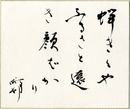 蜩きくや
ふるさと遠
き顔ばか
り